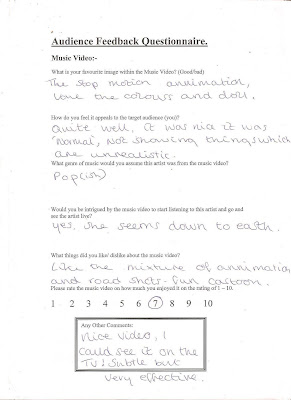 Audience Feedback Questionnaire.
Music Video:-
What is your favourite image within the Music Video? (Good/bad)
The stop motion annimation,
love the colours and doll.
How do you feel it appeals to the target audience (you)?
Quite well, it was nice it was
'normal', not showing things which
are unrealistic.
What genre of music would you assume this artist was from the music video?
Pop(ish)
Would you be intrigued by the music video to start listening to this artist and go and
see the artist live?
yes. she seems down to earth.
What things did you like/ dislike about the music video?
Like the mixture of annimation
and road shots - fun cartoon.
Please rate the music video on how much you enjoyed it on the rating of 1 – 10.
1 2 3 4 5 6 7 8 9 10
Any Other Comments:
nice video, I
could see it on the
TV! Subtle but
very effective.